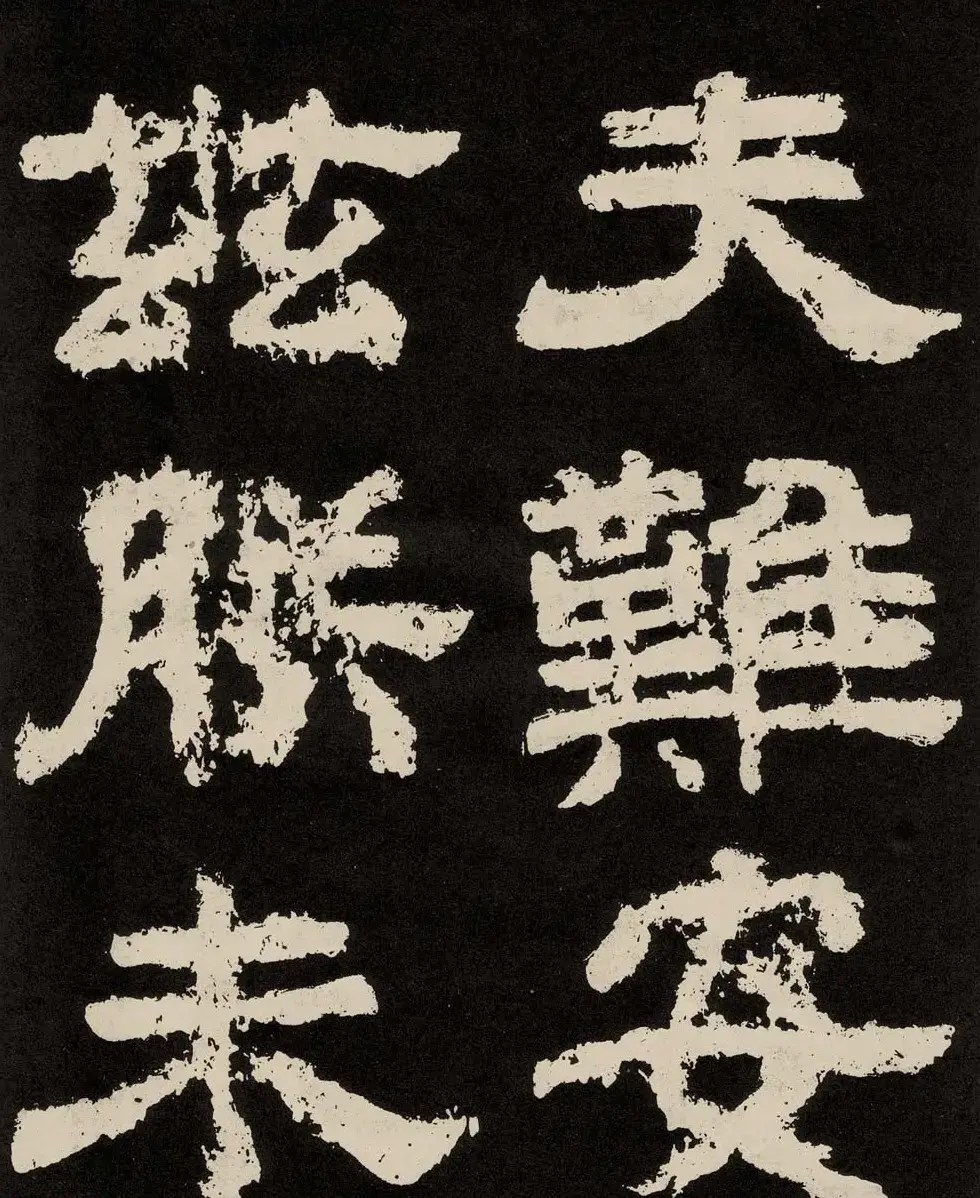 夫難安
茲朕未